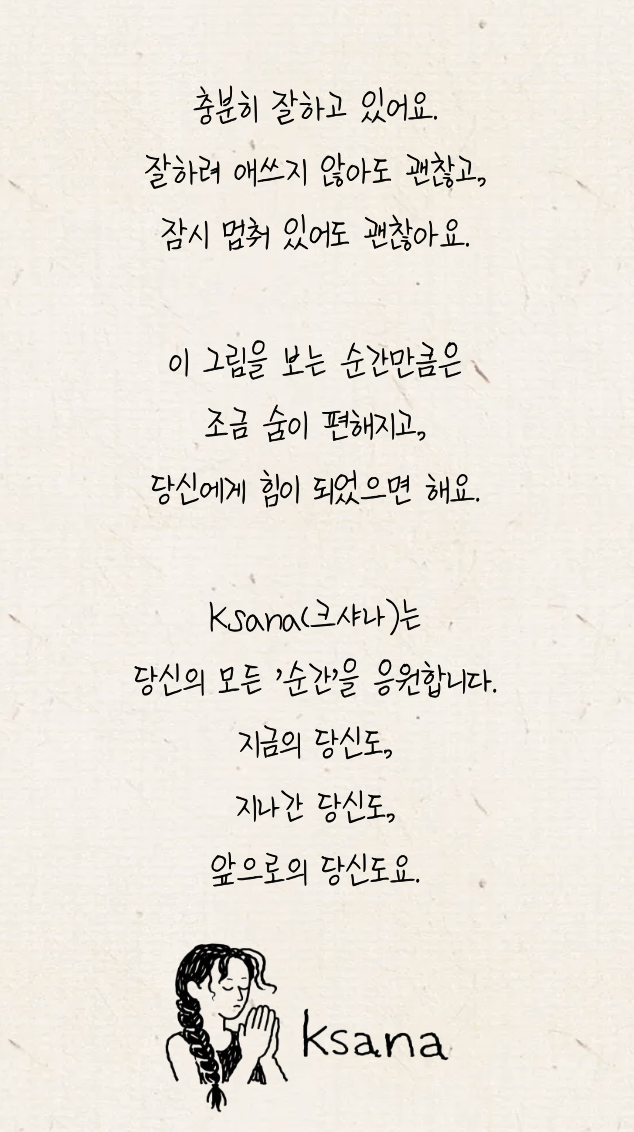 충분히 잘하고 있어요.
잘하려 애쓰지 않아도 괜찮고,
잠시 멈춰 있어도 괜찮아요.
이 그림을 보는 순간만큼은
조금 숨이 편해지고,
당신에게 힘이 되었으면 해요.
Ksana(크샤나)는
당신의 모든 '순간'을 응원합니다.
지금의 당신도,
지나간 당신도,
앞으로의 당신도요.
ksana